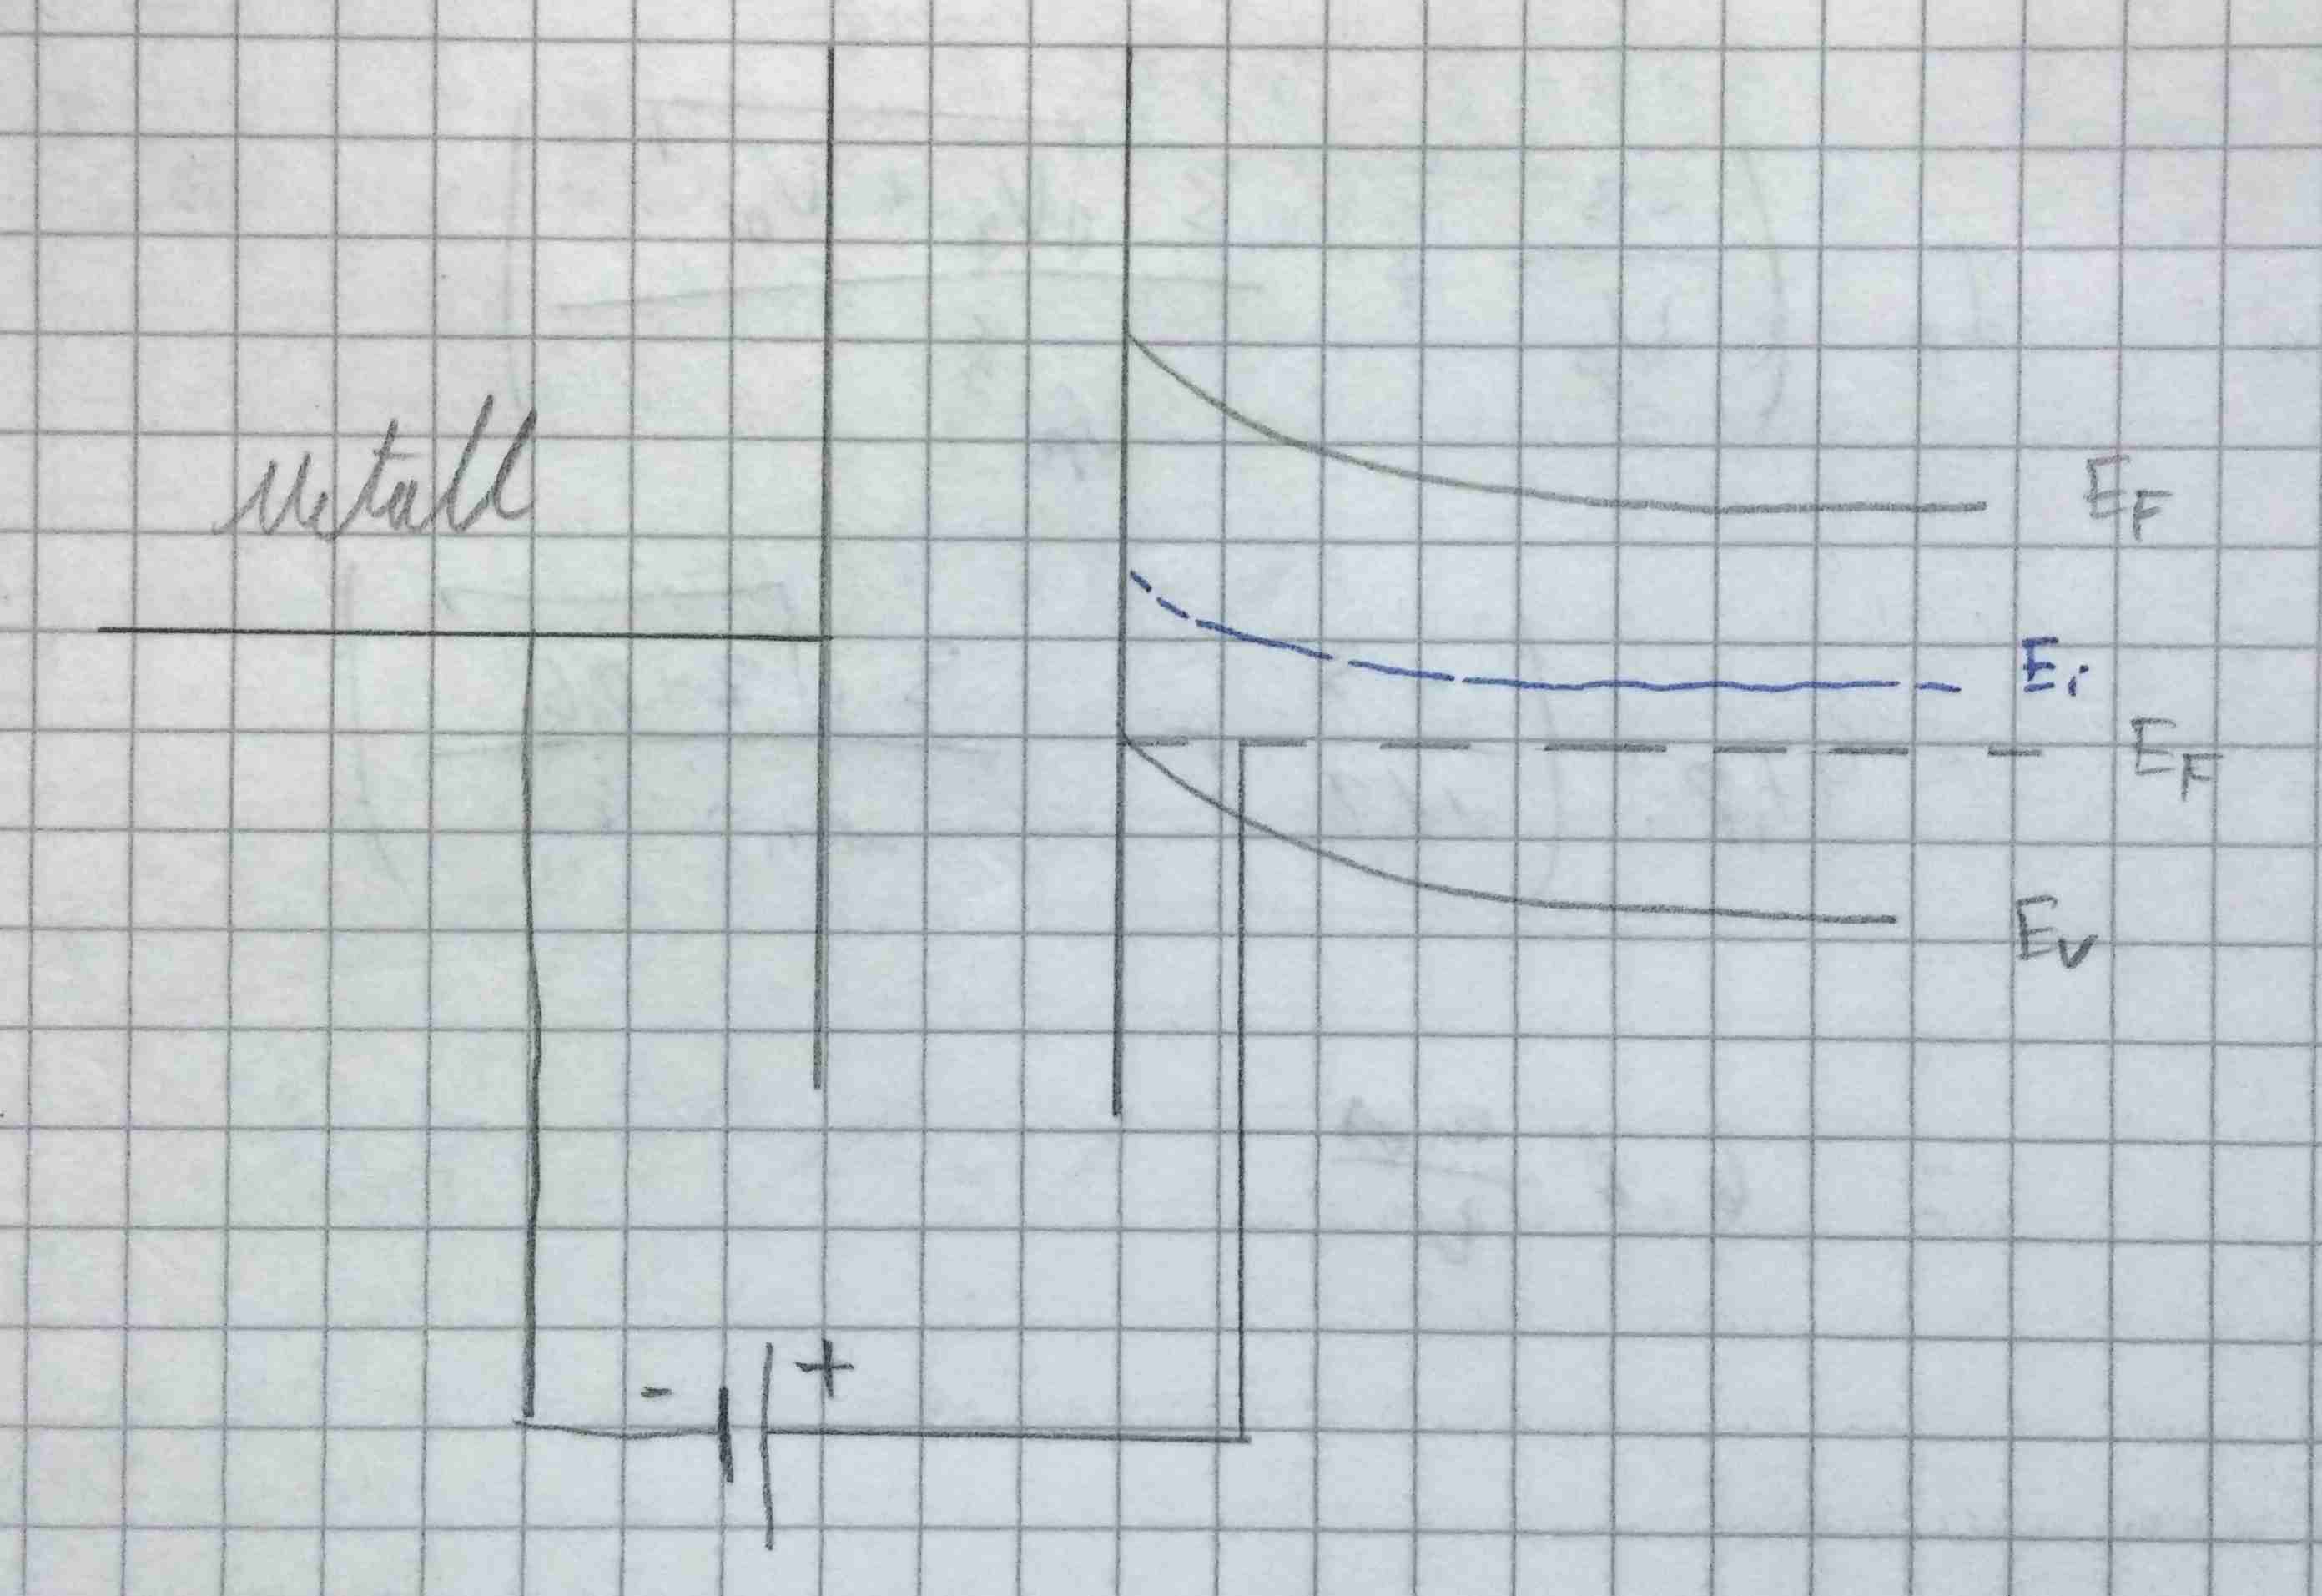 Metall
E_F
E_i
E_F
E_V
- +